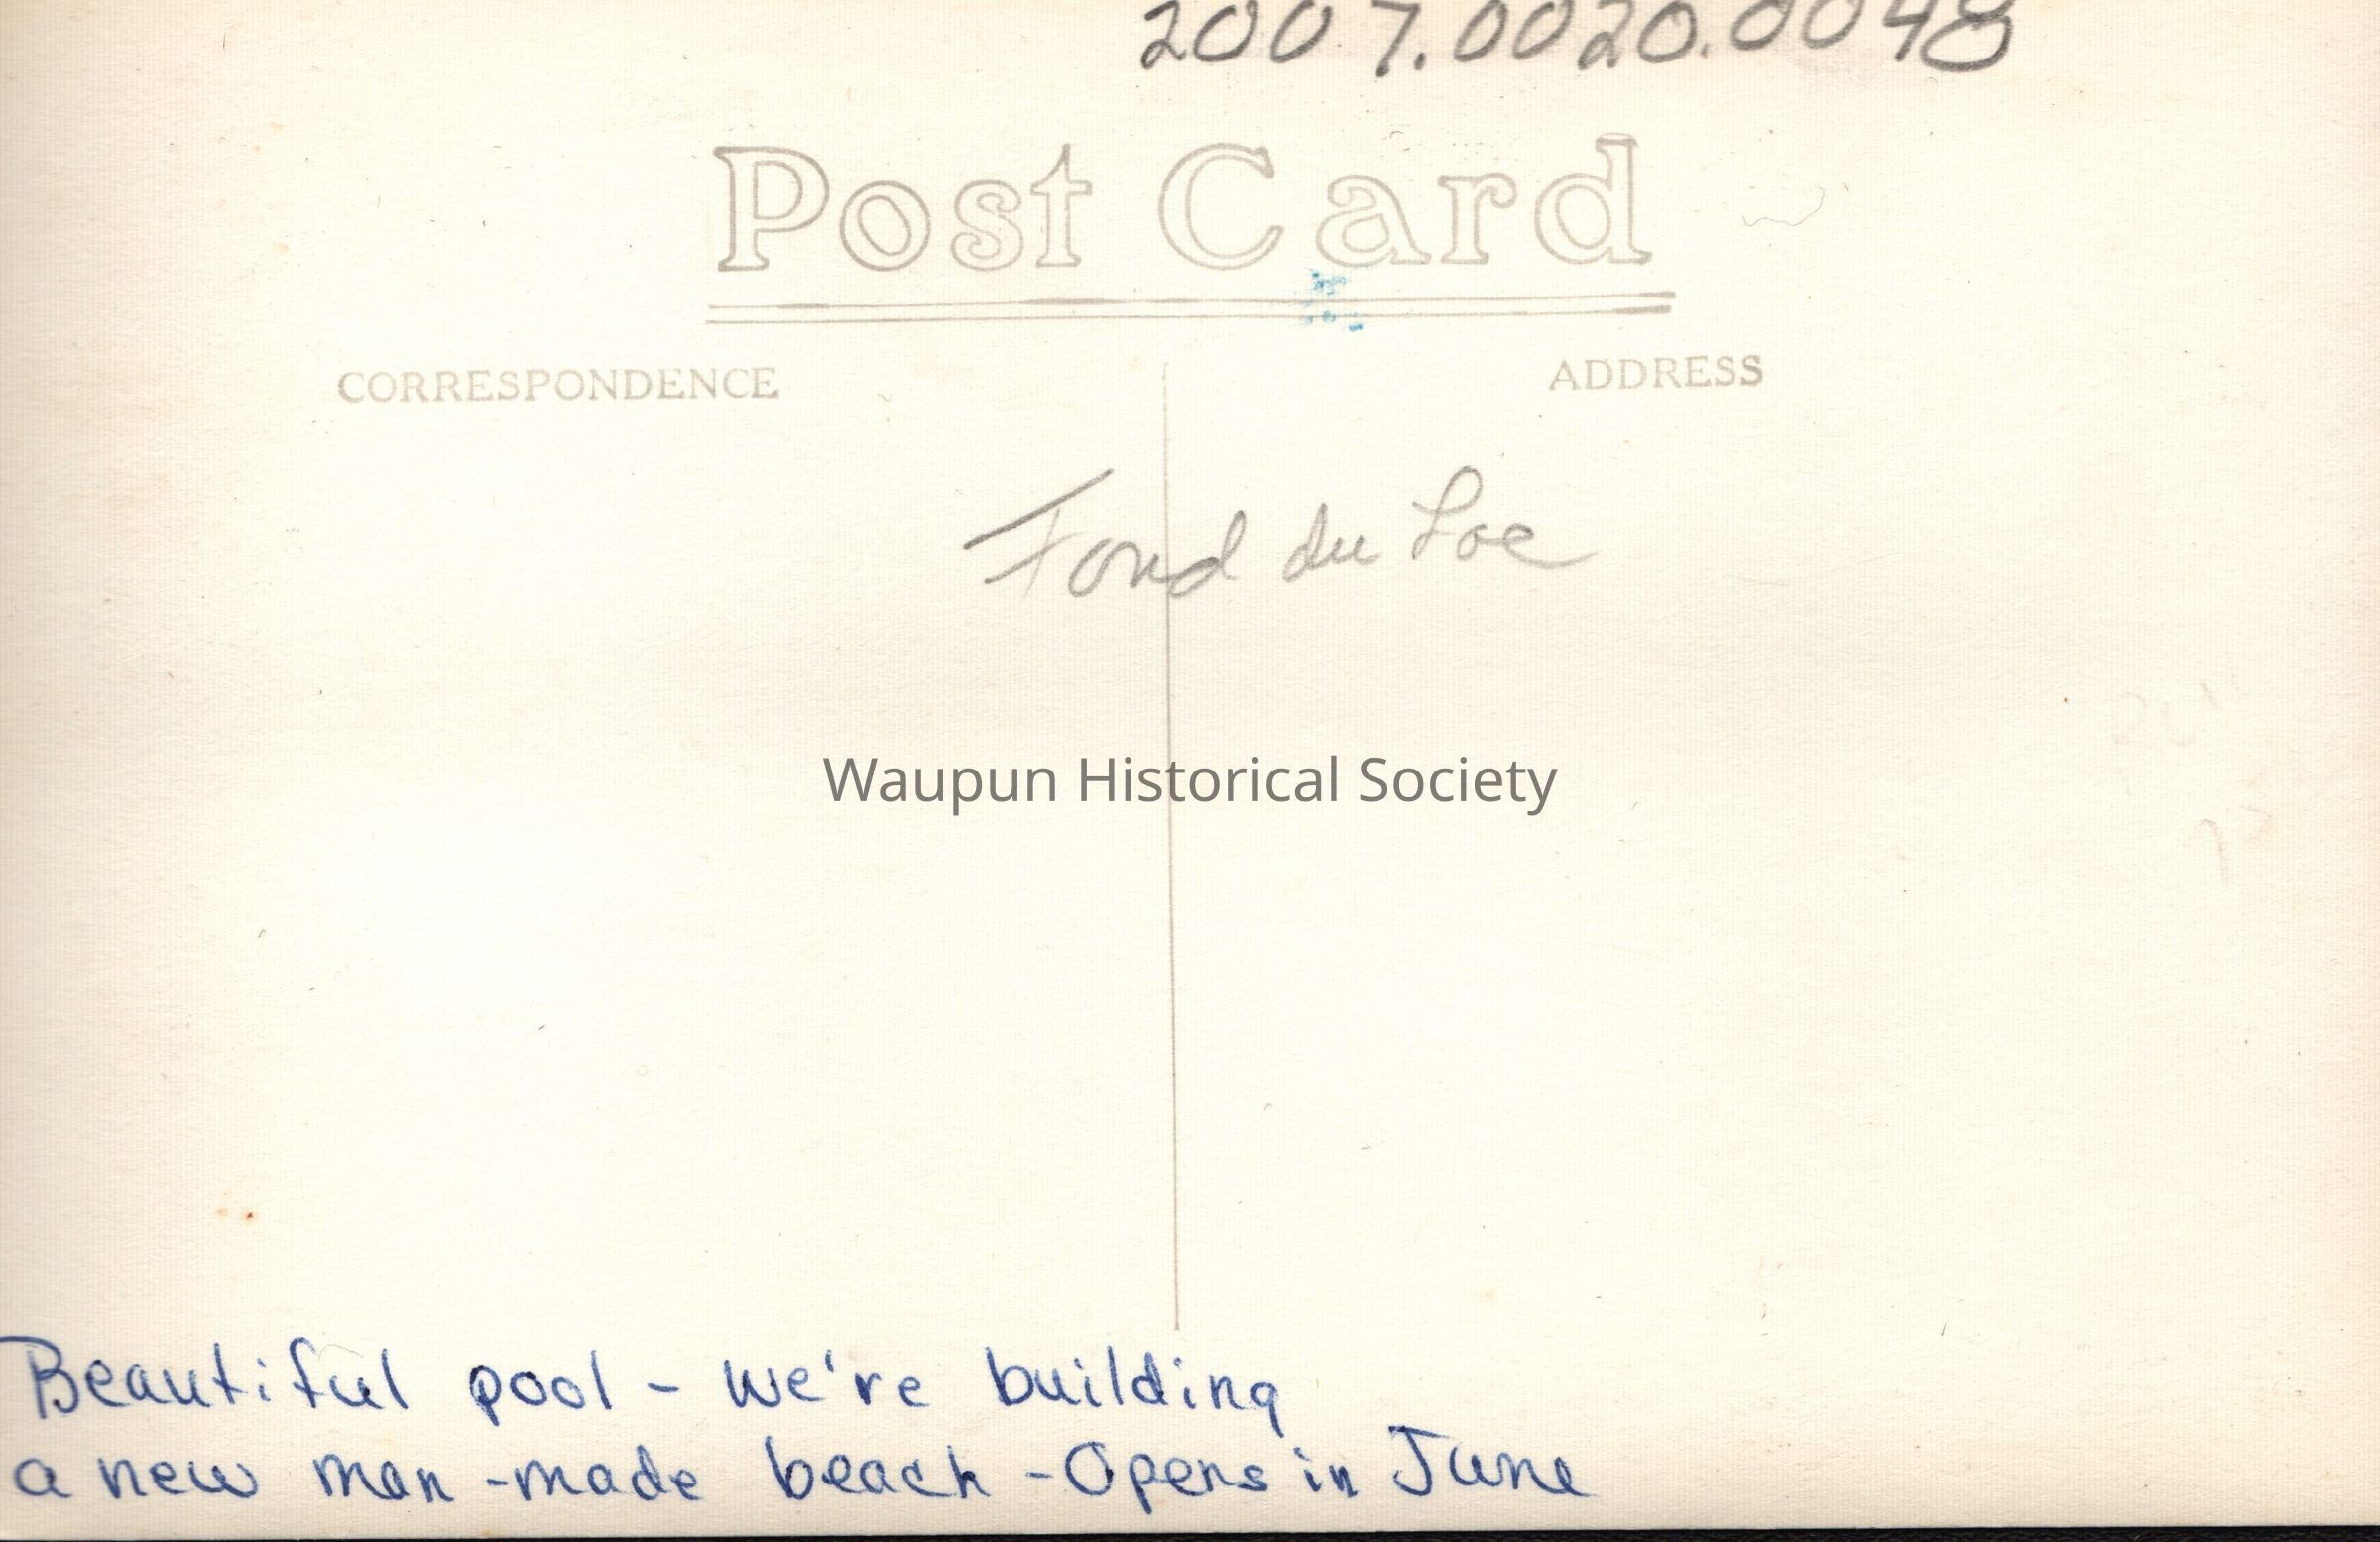 2007.0020.0048
Post Card
CORRESPONDENCE
ADDRESS
Fond du Lac
Waupun Historical Society
Beautiful pool - we're building
a new man-made beach - Opens in June